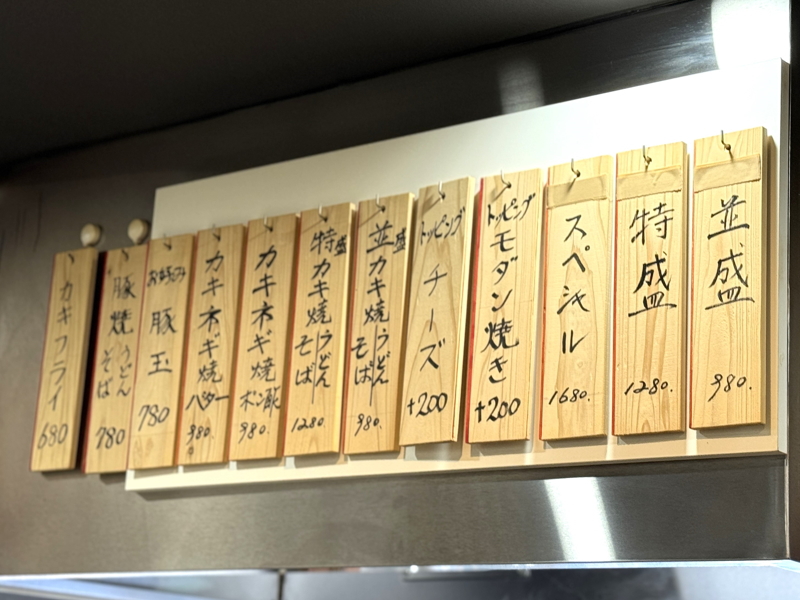 並盛
980.
特盛
1280.
スペシャル
1680.
トッピング
モダン焼き
+200
トッピング
チーズ
+200
並盛
カキ焼
うどん
そば
980.
特盛
カキ焼
うどん
そば
1280.
カキネギ焼
ポン酢
980.
カキネギ焼
バター
980.
お好み
豚玉
780
豚焼
うどん
そば
780
カキフライ
680